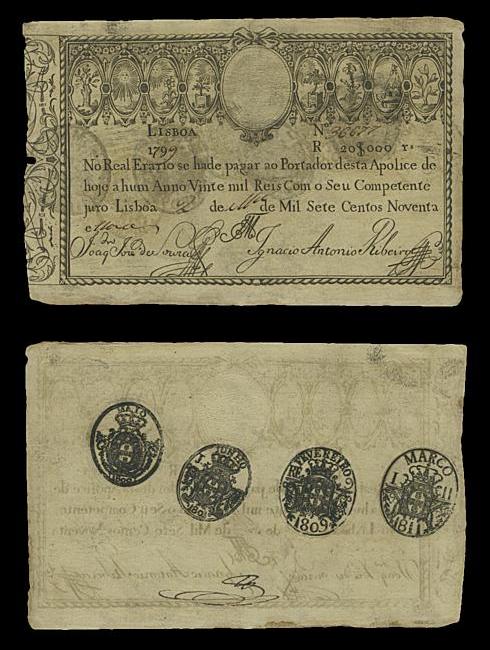 LISBOA Nº 36677
1799 R 20$000 rˢ
No Real Erario se hade pagar ao Portador desta Apolice de
hoje a hum Anno Vinte mil Reis Com o Seu Competente
juro Lisboa 2 de de Mil Sete Centos Noventa
e nove
Joaq Joze de Souza Ignacio Antonio Ribeiro
MAIO
JUNHO
FEVEREIRO
1809
MARÇO
1811